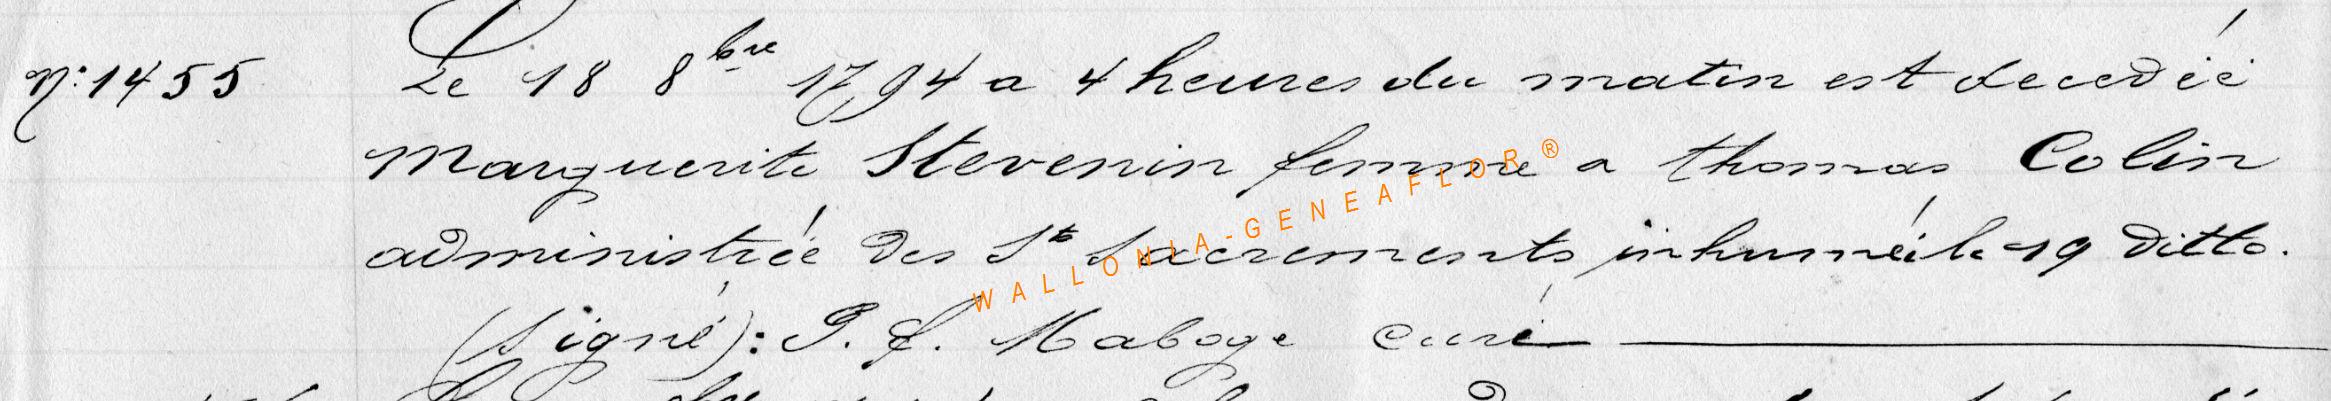 N: 1455 Le 18 8bre 1794 a 4 heures du matin est decedéé
Marguerite Stevenin femme a thomas Colin
administréé des Sts Sacrements inhuméé le 19 ditto.
(signé): P. f. Maboge curé
WALLONIA-GENEAFLOR®